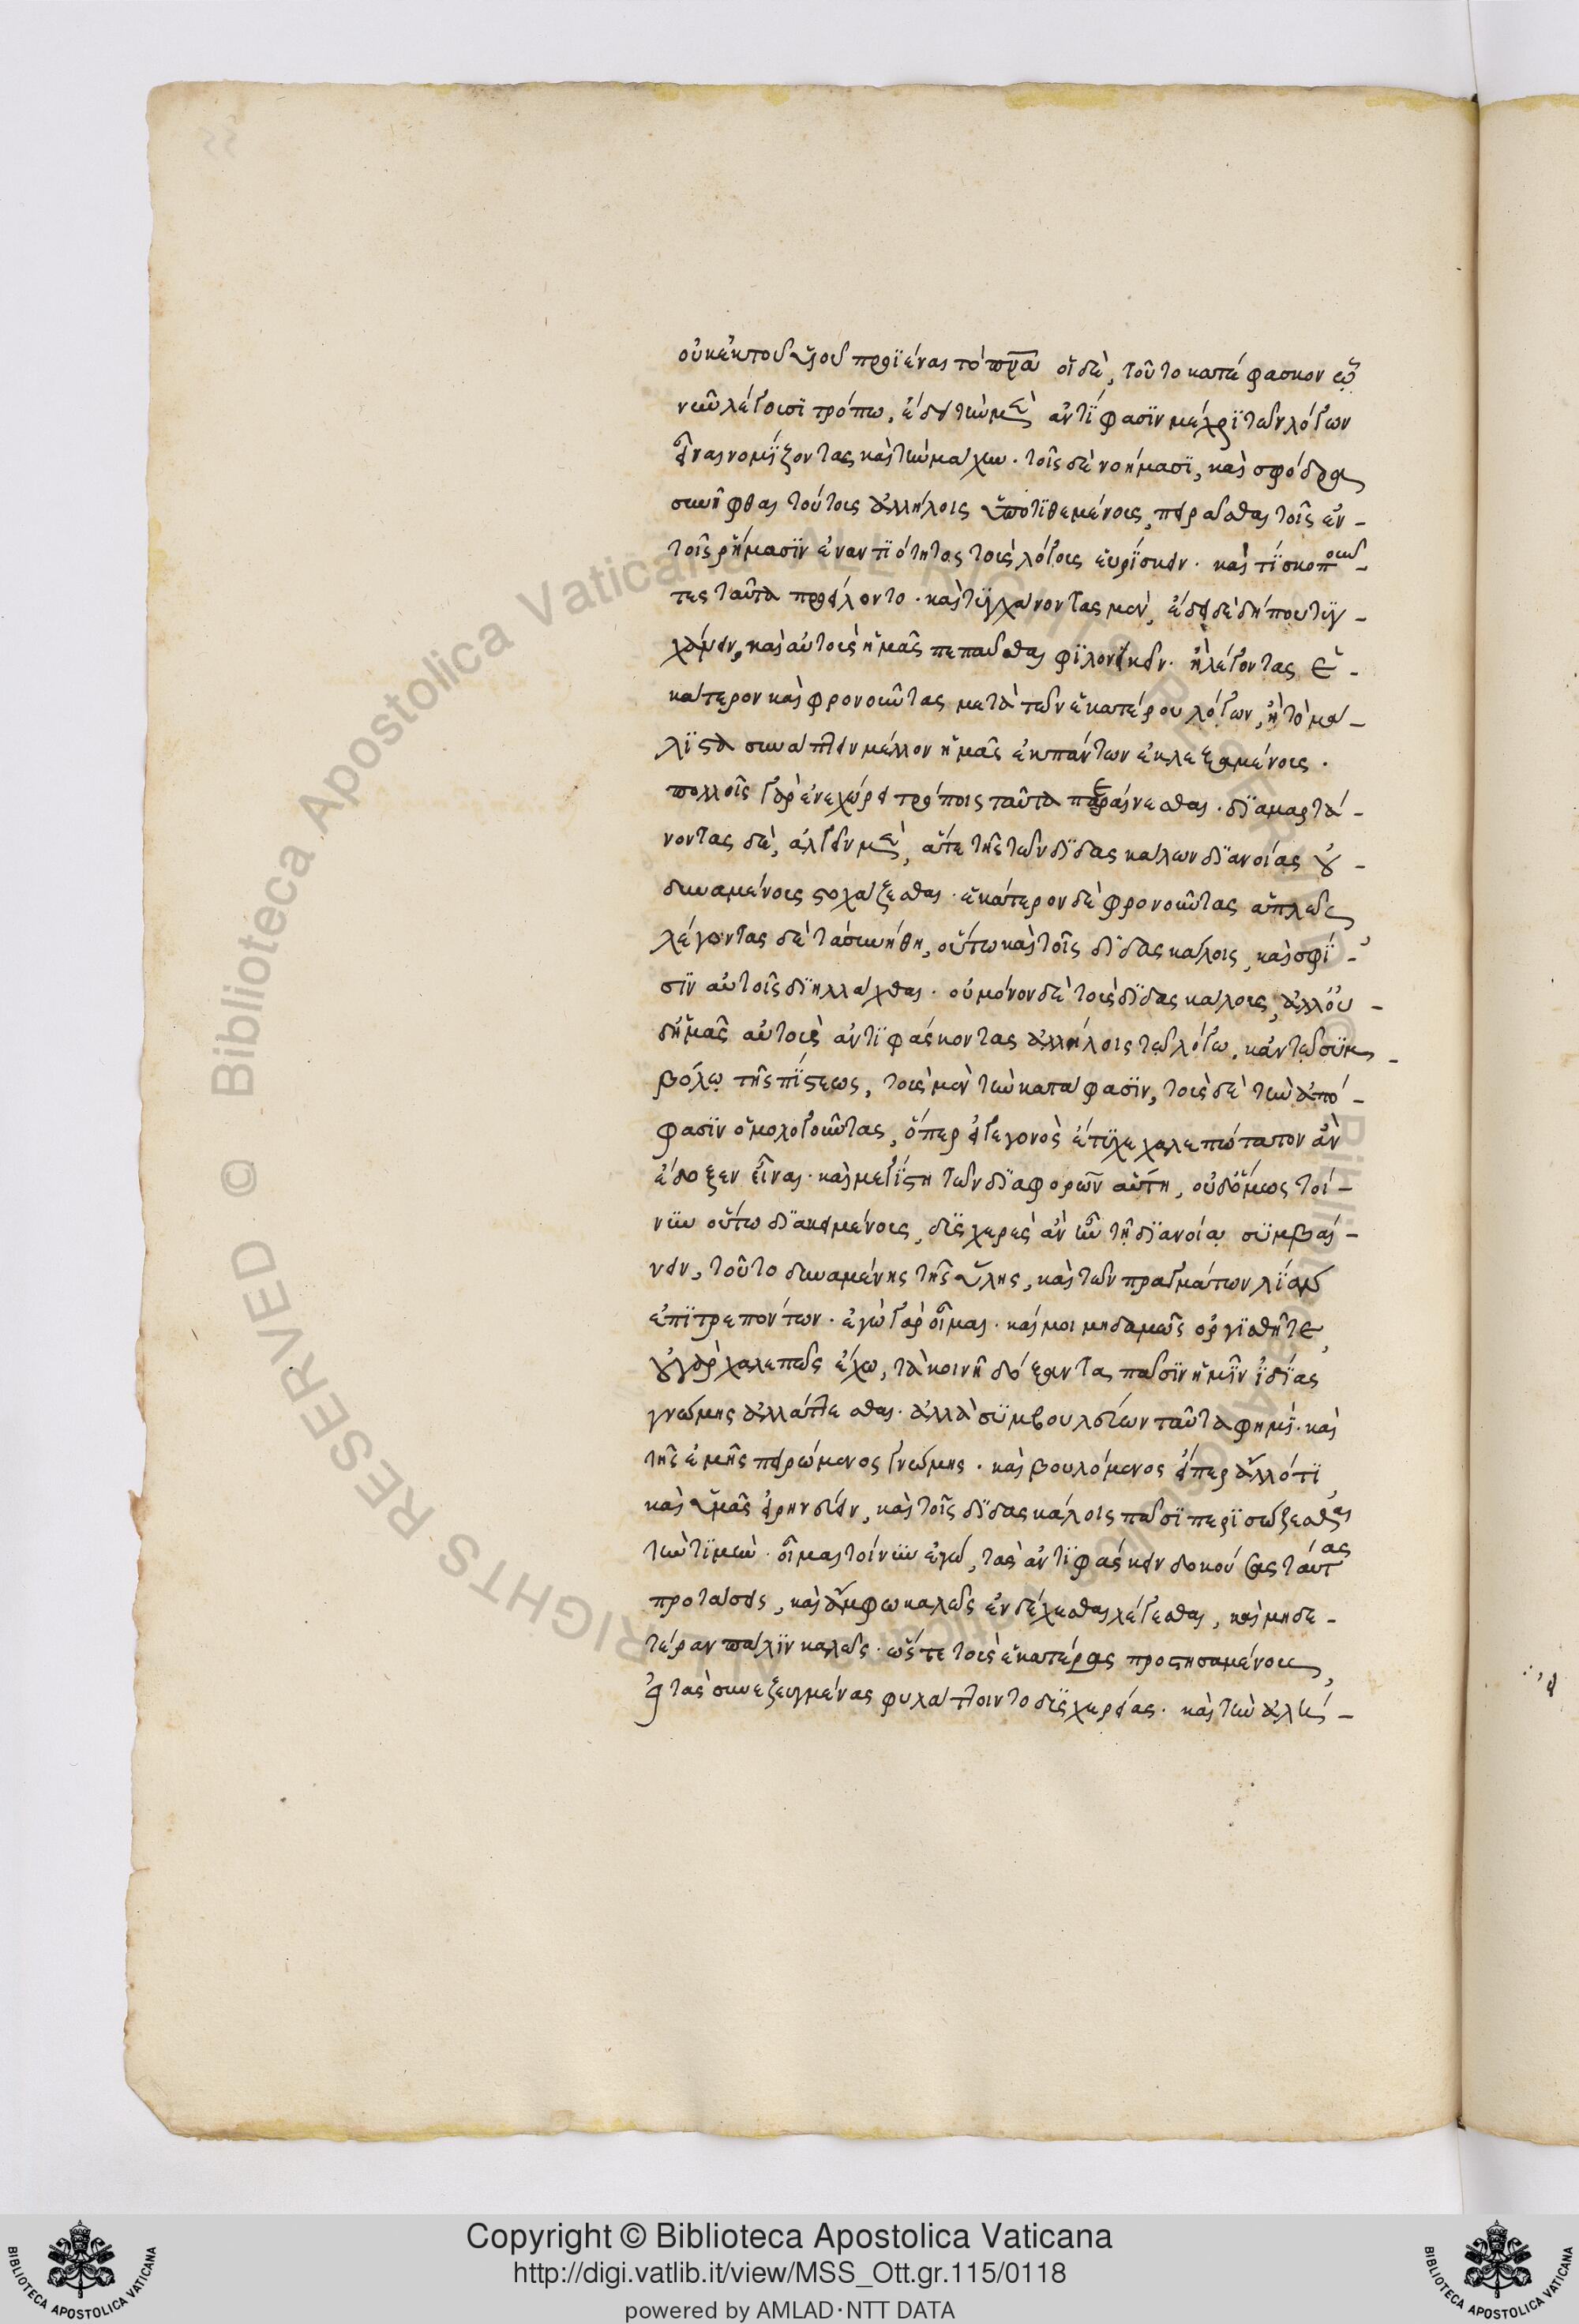 οὐκ ἐκ τοῦ υἱοῦ προϊέναι τὸ πνα οἱ δὲ, τοῦτο κατέφασκον ᾧ
νῦν λέγουσι τρόπω. ἔδει τὴν μὲν ἀντίφασιν μέχρι τῶν λόγων
εἶναι νομίζοντας καὶ τὴν μάχην. τοῖς δὲ νοήμασι, καὶ σφόδρα
συνῆφθαι τούτους ἀλλήλοις ὑποτιθεμένους, πειρᾶσθαι τοῖς ἐν-
τοῖς ρήμασιν ἐναντιότητος τοὺς λόγους εὑρίσκειν. καὶ τί σκοποῦν-
τες ταῦτα προείλοντο. καὶ τυγχάνοντας μὲν, ἔδει δὲ δήπου τυγ-
χάνειν, καὶ αὐτοὺς ἡμᾶς πεπαῦσθαι φιλονεικεῖν. ἢ λέγοντας ἑ-
κάτερον καὶ φρονοῦντας μετὰ τῶν ἑκατέρου λόγων, ἢ τὸ μά-
λιστα συνάπτειν μέλλον ἡμᾶς ἐκ πάντων ἐκλεξαμένους.
πολλοῖς γὰρ ἐνεχώρει τρόποις ταῦτα περαίνεσθαι. διαμαρτά-
νοντας δὲ, ἀλγεῖν μὲν, ἅτε τῆς τῶν διδασκάλων διανοίας οὐ-
δυναμένους στοχάζεσθαι. ἑκάτερον δὲ φρονοῦντας ἁπλῶς,
λέγοντας δὲ τὰ συνήθη, οὕτω καὶ τοῖς διδασκάλοις, καὶ σφί-
σιν αὐτοῖς διηλλάχθαι. οὐ μόνον δὲ τοὺς διδασκάλους, ἀλλ' οὐ-
δ' ἡμᾶς αὐτοὺς ἀντιφάσκοντας ἀλλήλοις τῶ λόγω, κἀν τῶ συμ-
βόλω τῆς πίστεως, τοὺς μὲν τὴν κατάφασιν, τοὺς δὲ τὴν ἀπό-
φασιν ὁμολογοῦντας, ὅπερ εἰ γεγονὸς ἔτυχε χαλεπώτατον ἂν
ἔδοξεν εἶναι. καὶ μεγίστη τῶν διαφορῶν αὕτη, οὐδ' ὅμως τοί-
νυν οὕτω διακειμένους, δυσχερὲς ἂν ἦν τῆ διανοία συμβαί-
νειν, τοῦτο δυναμένης τῆς ὕλης, καὶ τῶν πραγμάτων λίαν
ἐπιτρεπόντων. ἐγὼ γὰρ οἶμαι. καί μοι μηδαμῶς ὀργισθῆτε,
οὐ γὰρ χαλεπῶς ἔχω, τὰ κοινῆ δόξαντα πᾶσιν ἡμῖν ἰδίας
γνώμης ἀλλάττεσθαι. ἀλλὰ συμβουλεύων ταῦτα φημὶ. καὶ
τῆς ἐμῆς πειρώμενος γνώμης. καὶ βουλόμενος εἴπερ ἄλλό τι
καὶ ὑμᾶς εἰρηνεύειν, καὶ τοῖς διδασκάλοις πᾶσι περισώζεσθαι
τὴν τιμὴν. οἶμαι τοίνυν ἐγὼ, τὰς ἀντιφάσκειν δοκούσας ταύτας
προτάσεις, καὶ ἄμφω καλῶς ἐνδέχεσθαι λέγεσθαι, καὶ μηδε-
τέραν πάλιν καλῶς. ὥστε τοὺς ἑκατέρας προστησαμένους,
εἰ τὰς συνεζευγμένας φυλάττοιντο δυσχερείας. καὶ τὴν ἀλή-